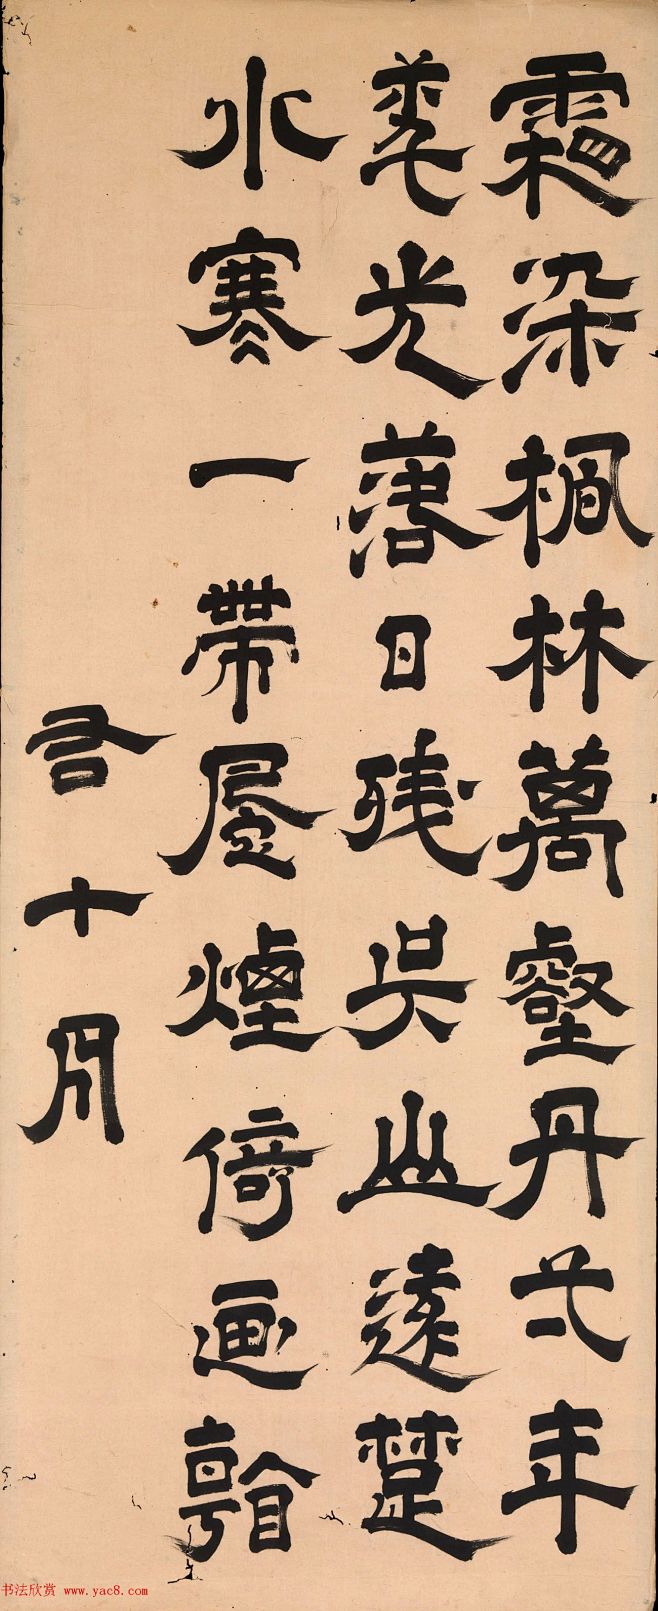 霜染楓林萬壑丹年
華光落日残吴山遠楚
水寒一帶煙倚画
右十月
书法欣赏 www.yac8.com